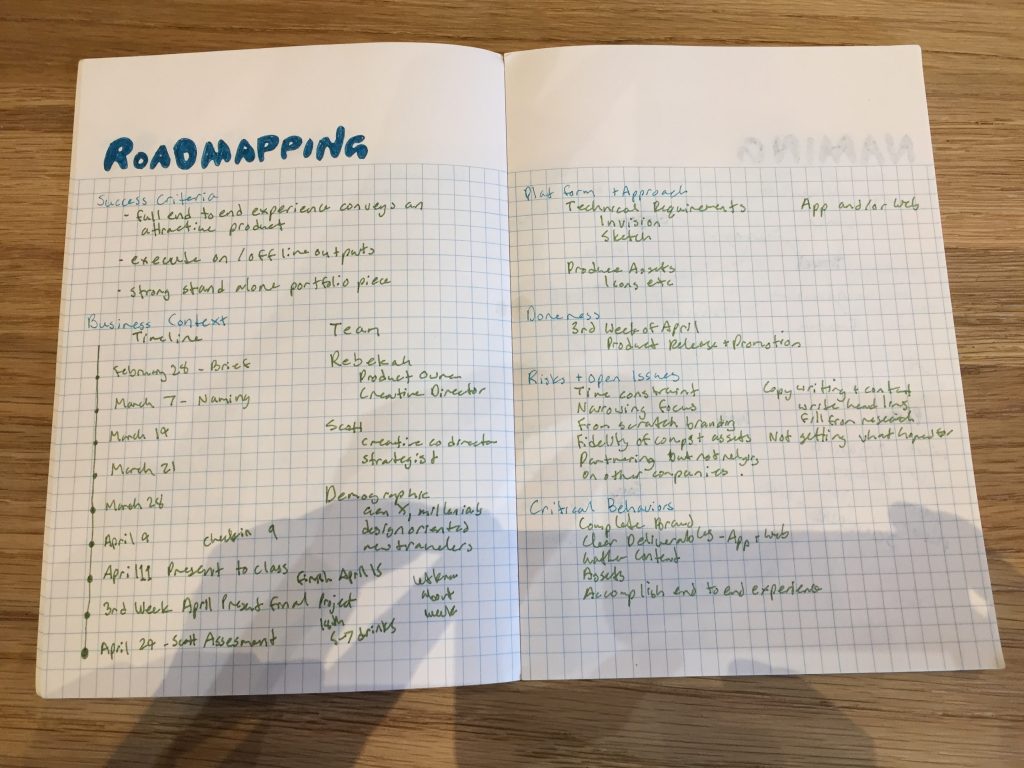 ROADMAPPING
Success Criteria
- full end to end experience conveys an
attractive product
- execute on/offline outputs
- strong stand alone portfolio piece
Business Context
Timeline
February 28 - Brief
March 7 - Naming
March 14
March 21
March 28
April 9 checkin 9
April 11 Present to class Finish April 15
3rd Week April Present Final Project
April 24 - Scott Assesment 5-7 drinks
week
Team
Rebekah
Product Owner
Creative Director
Scott
creative co director
strategist
Demographic
Gen X, millenials
design oriented
new travelers
NAMING
Platform + Approach
Technical Requirements App and/or Web
Invision
Sketch
Produce Assets
Icons etc
Doneness
3rd Week of April
Product Release + Promotion
Risks + Open Issues
Time constraint Copy writing + content
Narrowing focus write head lines
From scratch branding fill from research
Fidelity of comps + assets Not getting what hoped for
Partnering but not relying
on other companies.
Critical Behaviors
Complete Brand
Clear Deliverables - App + Web
Gather Content
Assets
Accomplish end to end experience